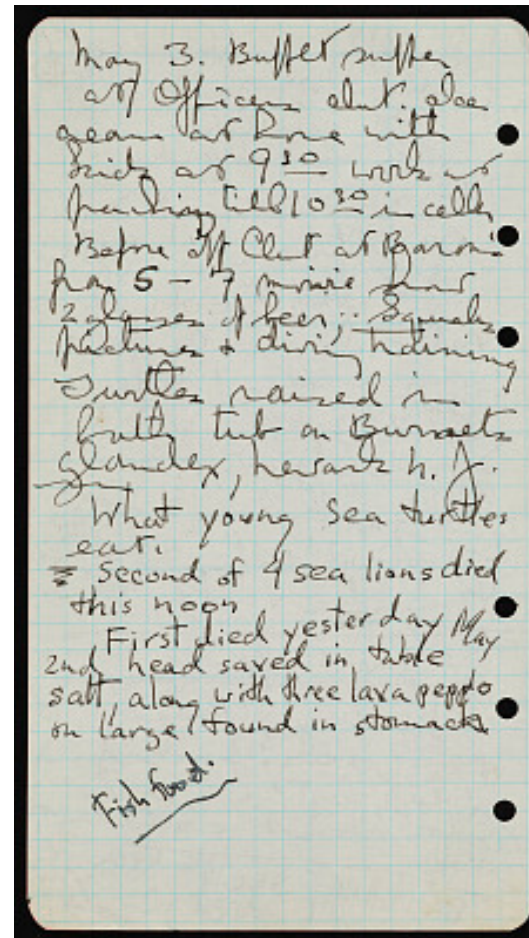 May 3. Buffet supper
at Officers club. Ice
cream at home with
kids at 9 30 work at
painting till 10 30 in cell
Before Off Club at Baron's
from 5 - 7 movie
2 glasses of beer, Squeaky
pictures & diving training
Turtles raised in
bath tub on Burnets
Newark N. J.
What young sea turtles
eat.
Second of 4 sea lions died
this noon
First died yesterday May
2nd, head saved in table
salt, along with three lava
on large found in stomach
Fish food.